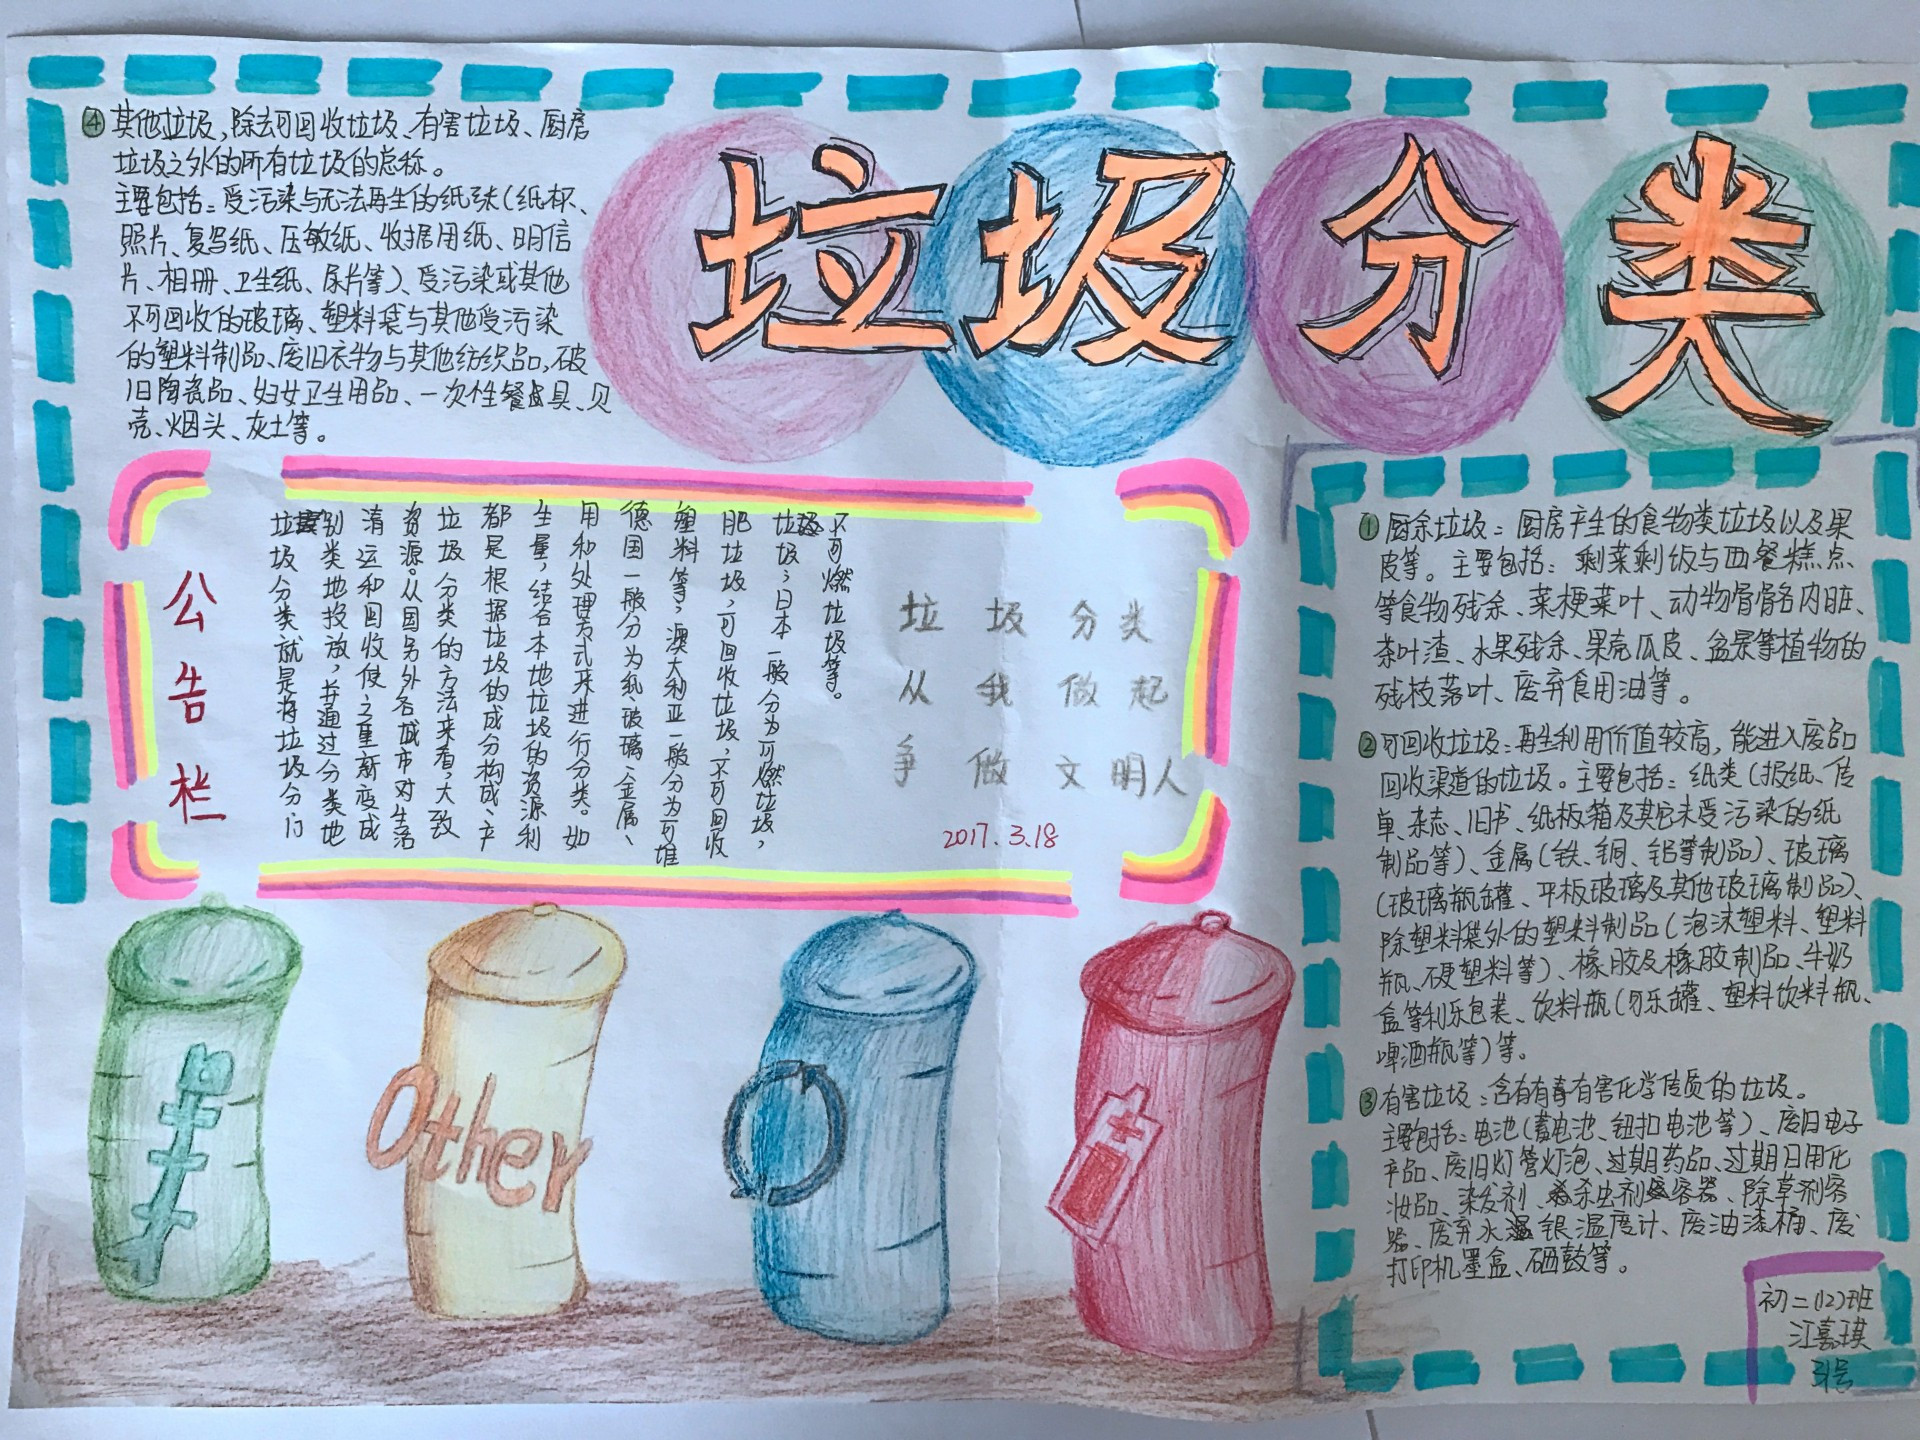 垃圾分类
④其他垃圾,除去可回收垃圾、有害垃圾、厨房
垃圾之外的所有垃圾的总称。
主要包括:受污染与无法再生的纸张(纸杯、
照片、复写纸、压敏纸、收据用纸、明信
片、相册、卫生纸、尿片等)、受污染或其他
不可回收的玻璃、塑料袋与其他受污染
的塑料制品、废旧衣物与其他纺织品,破
旧陶瓷品、妇女卫生用品、一次性餐具、贝
壳、烟头、灰土等。
公告栏
垃圾分类就是将垃圾分门
别类地投放,并通过分类地
清运和回收使之重新变成
资源。从国另外各城市对生活
垃圾分类的方法来看,大致
都是根据垃圾的成分构成、产
生量,结合本地垃圾的资源利
用和处理方式来进行分类。如
德国一般分为纸、玻璃、金属、
塑料等,澳大利亚一般分为可堆
肥垃圾,可回收垃圾,不可回收
垃圾;日本一般分为可燃垃圾,
不可燃垃圾等。
垃圾分类
从我做起
争做文明人
2017.3.18
Other
①厨余垃圾:厨房产生的食物类垃圾以及果
皮等。主要包括:剩菜剩饭与西餐糕点
等食物残余、菜梗菜叶、动物骨骼内脏、
茶叶渣、水果残余、果壳瓜皮、盆景等植物的
残枝落叶、废弃食用油等。
②可回收垃圾:再生利用价值较高,能进入废品
回收渠道的垃圾。主要包括:纸类(报纸、传
单、杂志、旧书、纸板箱及其它未受污染的纸
制品等)、金属(铁、铜、铝等制品)、玻璃
(玻璃瓶罐、平板玻璃及其他玻璃制品)、
除塑料袋外的塑料制品(泡沫塑料、塑料
瓶、硬塑料等)、橡胶及橡胶制品、牛奶
盒等利乐包装、饮料瓶(可乐罐、塑料饮料瓶、
啤酒瓶等)等。
③有害垃圾:含有有毒有害化学传质的垃圾。
主要包括:电池(蓄电池、钮扣电池等)、废旧电子
产品、废旧灯管灯泡、过期药品、过期日用化
妆品、染发剂、杀虫剂容器、除草剂容
器、废弃水银温度计、废油漆桶、废
打印机墨盒、硒鼓等。
初二(12)班
江嘉琪
31号